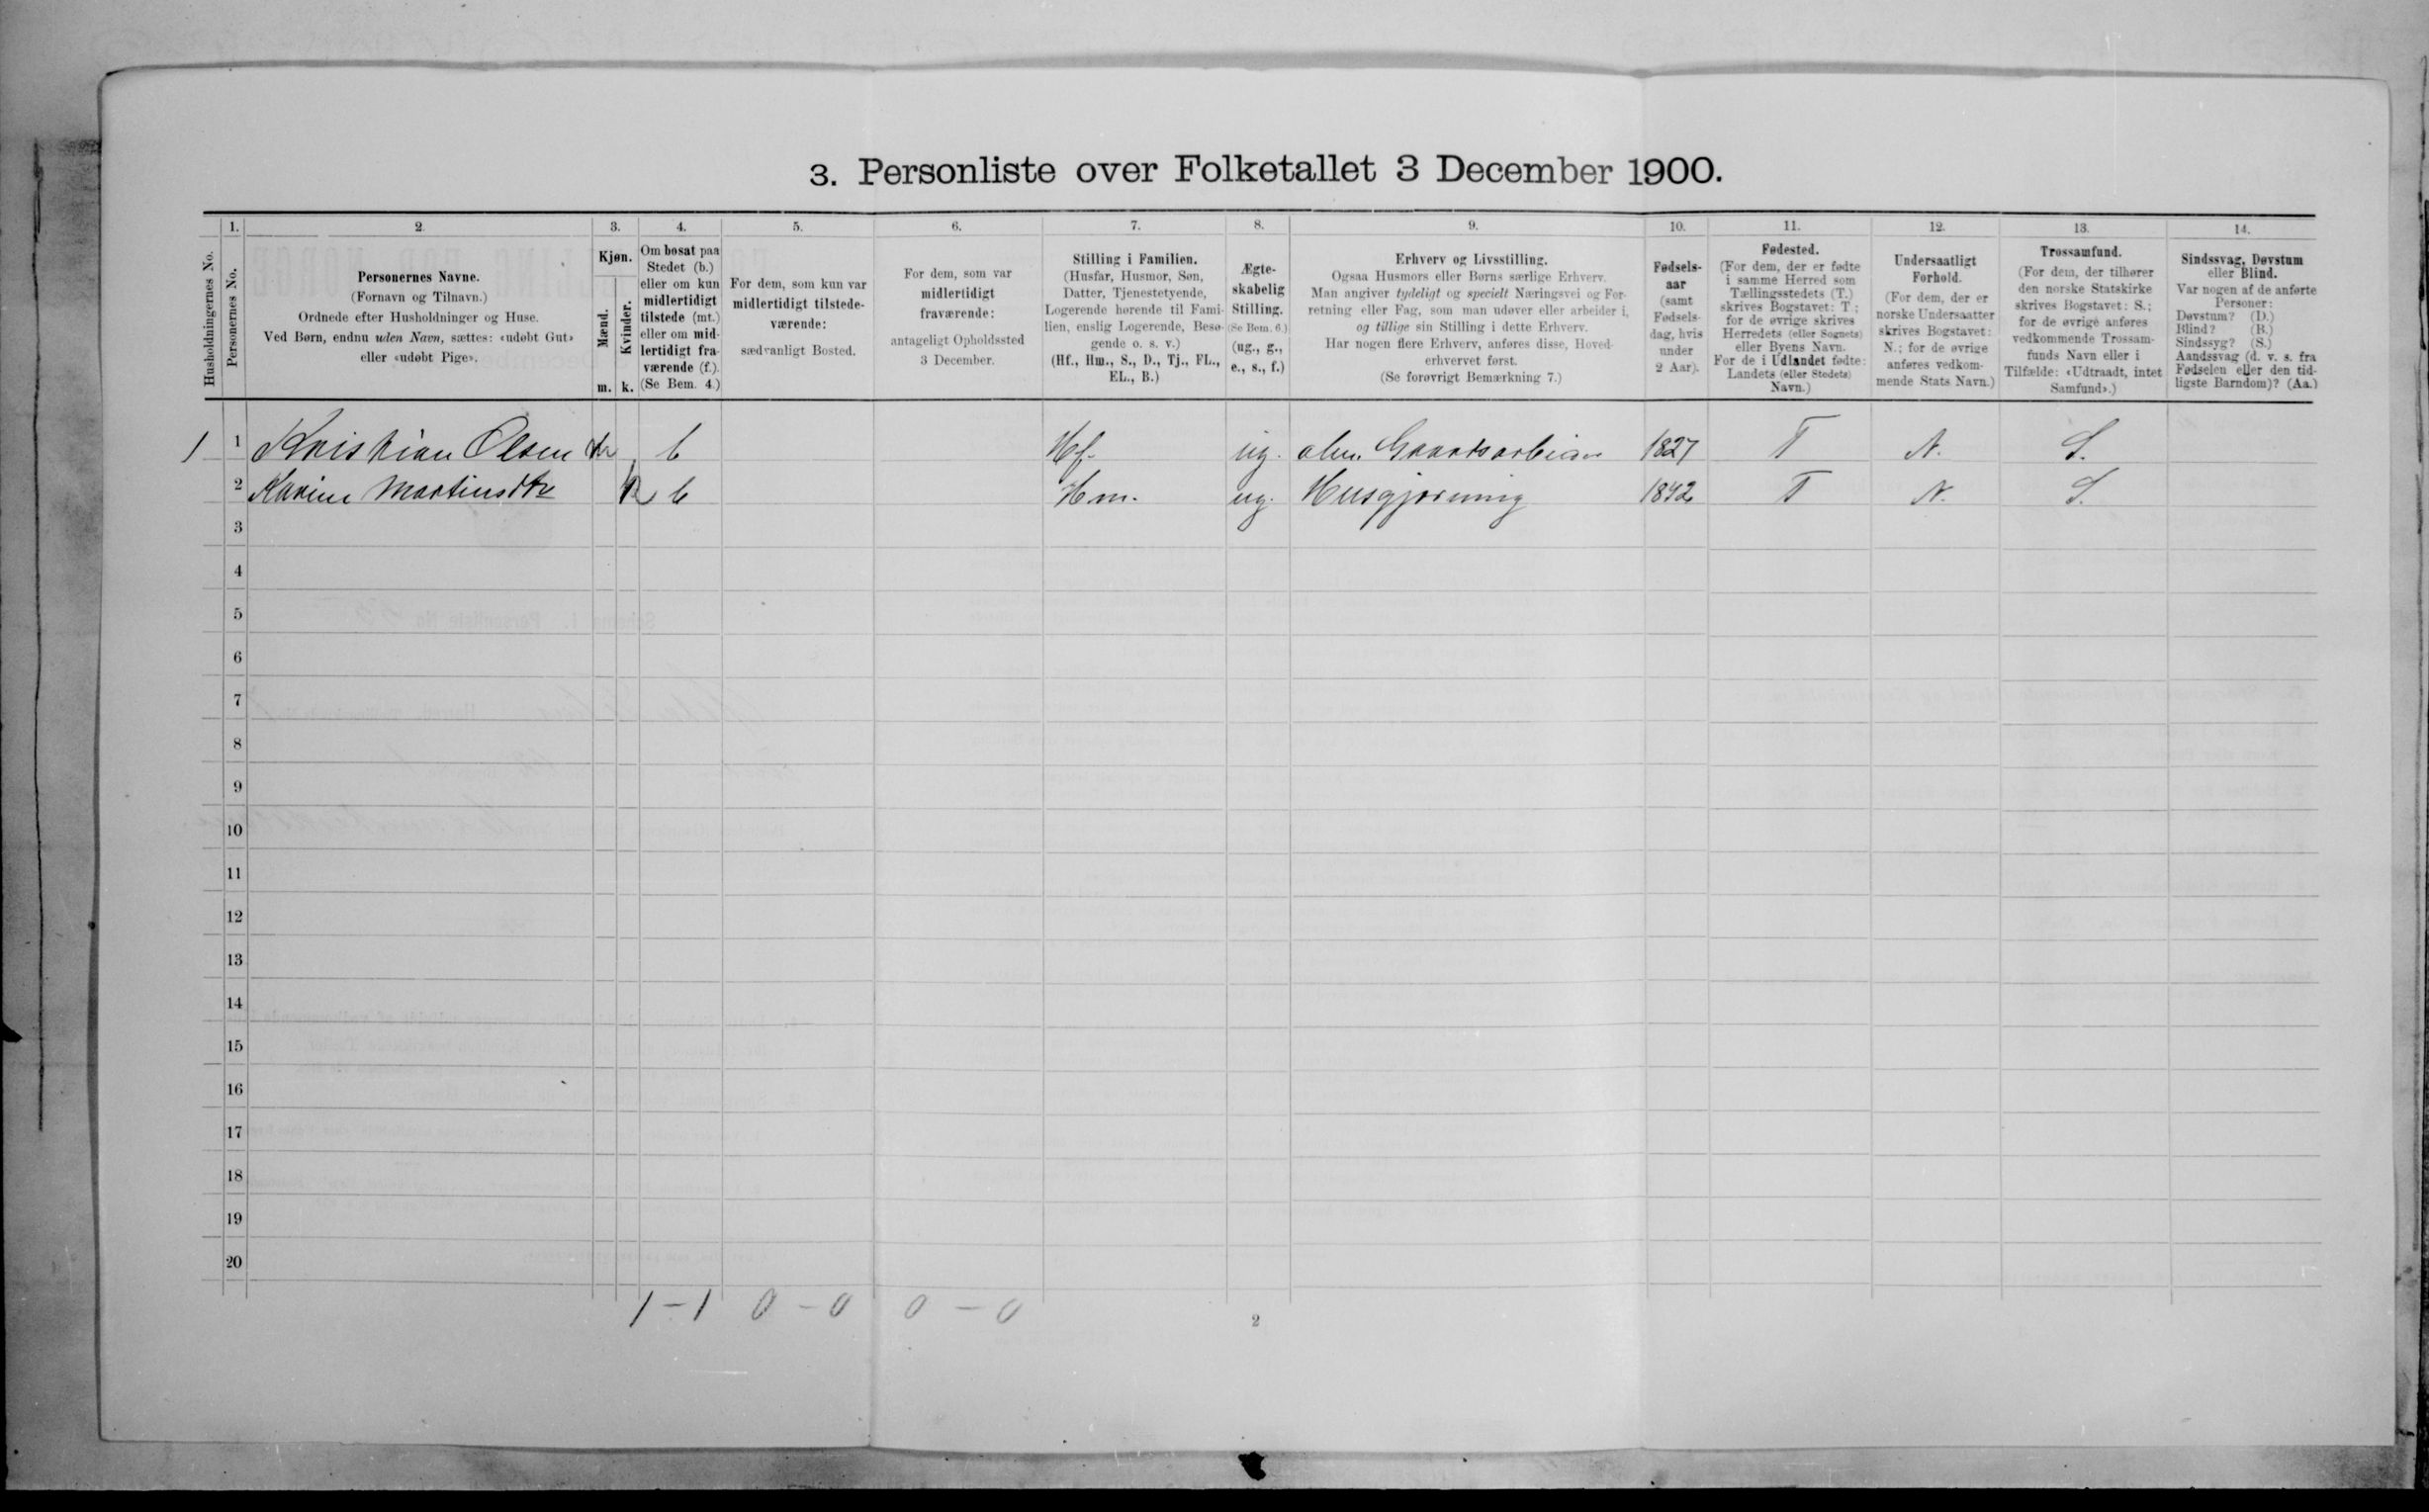 3. Personliste over Folketallet 3 December 1900.
Husholdningernes No.
1.
Personernes No.
2.
Personernes Navne.
(Fornavn og Tilnavn.)
Ordnede efter Husholdninger og Huse.
Ved Børn, endnu uden Navn, sættes: «udøbt Gut»
eller «udøbt Pige».
3.
Kjøn.
Mænd.
Kvinder.
m. k.
4.
Om bosat paa
Stedet (b.)
eller om kun
midlertidigt
tilstede (mt.)
eller om mid-
lertidigt fra-
værende (f.).
(Se Bem. 4.)
5.
For dem, som kun var
midlertidigt tilstede-
værende:
sædvanligt Bosted.
6.
For dem, som var
midlertidigt
fraværende:
antageligt Opholdssted
3 December.
7.
Stilling i Familien.
(Husfar, Husmor, Søn,
Datter, Tjenestetyende,
Logerende hørende til Fami-
lien, enslig Logerende, Besø-
gende o. s. v.)
(Hf., Hm., S., D., Tj., FL.,
EL., B.)
8.
Ægte-
skabelig
Stilling.
(Se Bem. 6.)
(ug., g.,
e., s., f.)
9.
Erhverv og Livsstilling.
Ogsaa Husmors eller Børns særlige Erhverv.
Man angiver tydeligt og specielt Næringsvei og For-
retning eller Fag, som man udøver eller arbeider i,
og tillige sin Stilling i dette Erhverv.
Har nogen flere Erhverv, anføres disse, Hoved-
erhvervet først.
(Se forøvrigt Bemærkning 7.)
10.
Fødsels-
aar
(samt
Fødsels-
dag, hvis
under
2 Aar).
11.
Fødested.
(For dem, der er fødte
i samme Herred som
Tællingsstedets (T.)
skrives Bogstavet: T ;
for de øvrige skrives
Herredets (eller Sognets)
eller Byens Navn.
For de i Udlandet fødte:
Landets (eller Stedets)
Navn.)
12.
Undersaatligt
Forhold.
(For dem, der er
norske Undersaatter
skrives Bogstavet:
N.; for de øvrige
anføres vedkom-
mende Stats Navn.)
13.
Trossamfund.
(For dem, der tilhører
den norske Statskirke
skrives Bogstavet: S.;
for de øvrige anføres
vedkommende Trossam-
funds Navn eller i
Tilfælde: «Udtraadt, intet
Samfund».)
14.
Sindssvag, Døvstum
eller Blind.
Var nogen af de anførte
Personer:
Døvstum? (D.)
Blind? (B.)
Sindssyg? (S.)
Aandssvag (d. v. s. fra
Fødselen eller den tid-
ligste Barndom)? (Aa.)
1 1 Kristian Olsen m b Hf. ug. 1827 T N. S.
2 Karine Martinsdtr k b Hm. ug. Husgjerning 1842 T N. S.
3
4
5
6
7
8
9
10
11
12
13
14
15
16
17
18
19
20
1 - 1 0 - 0 0 - 0
2